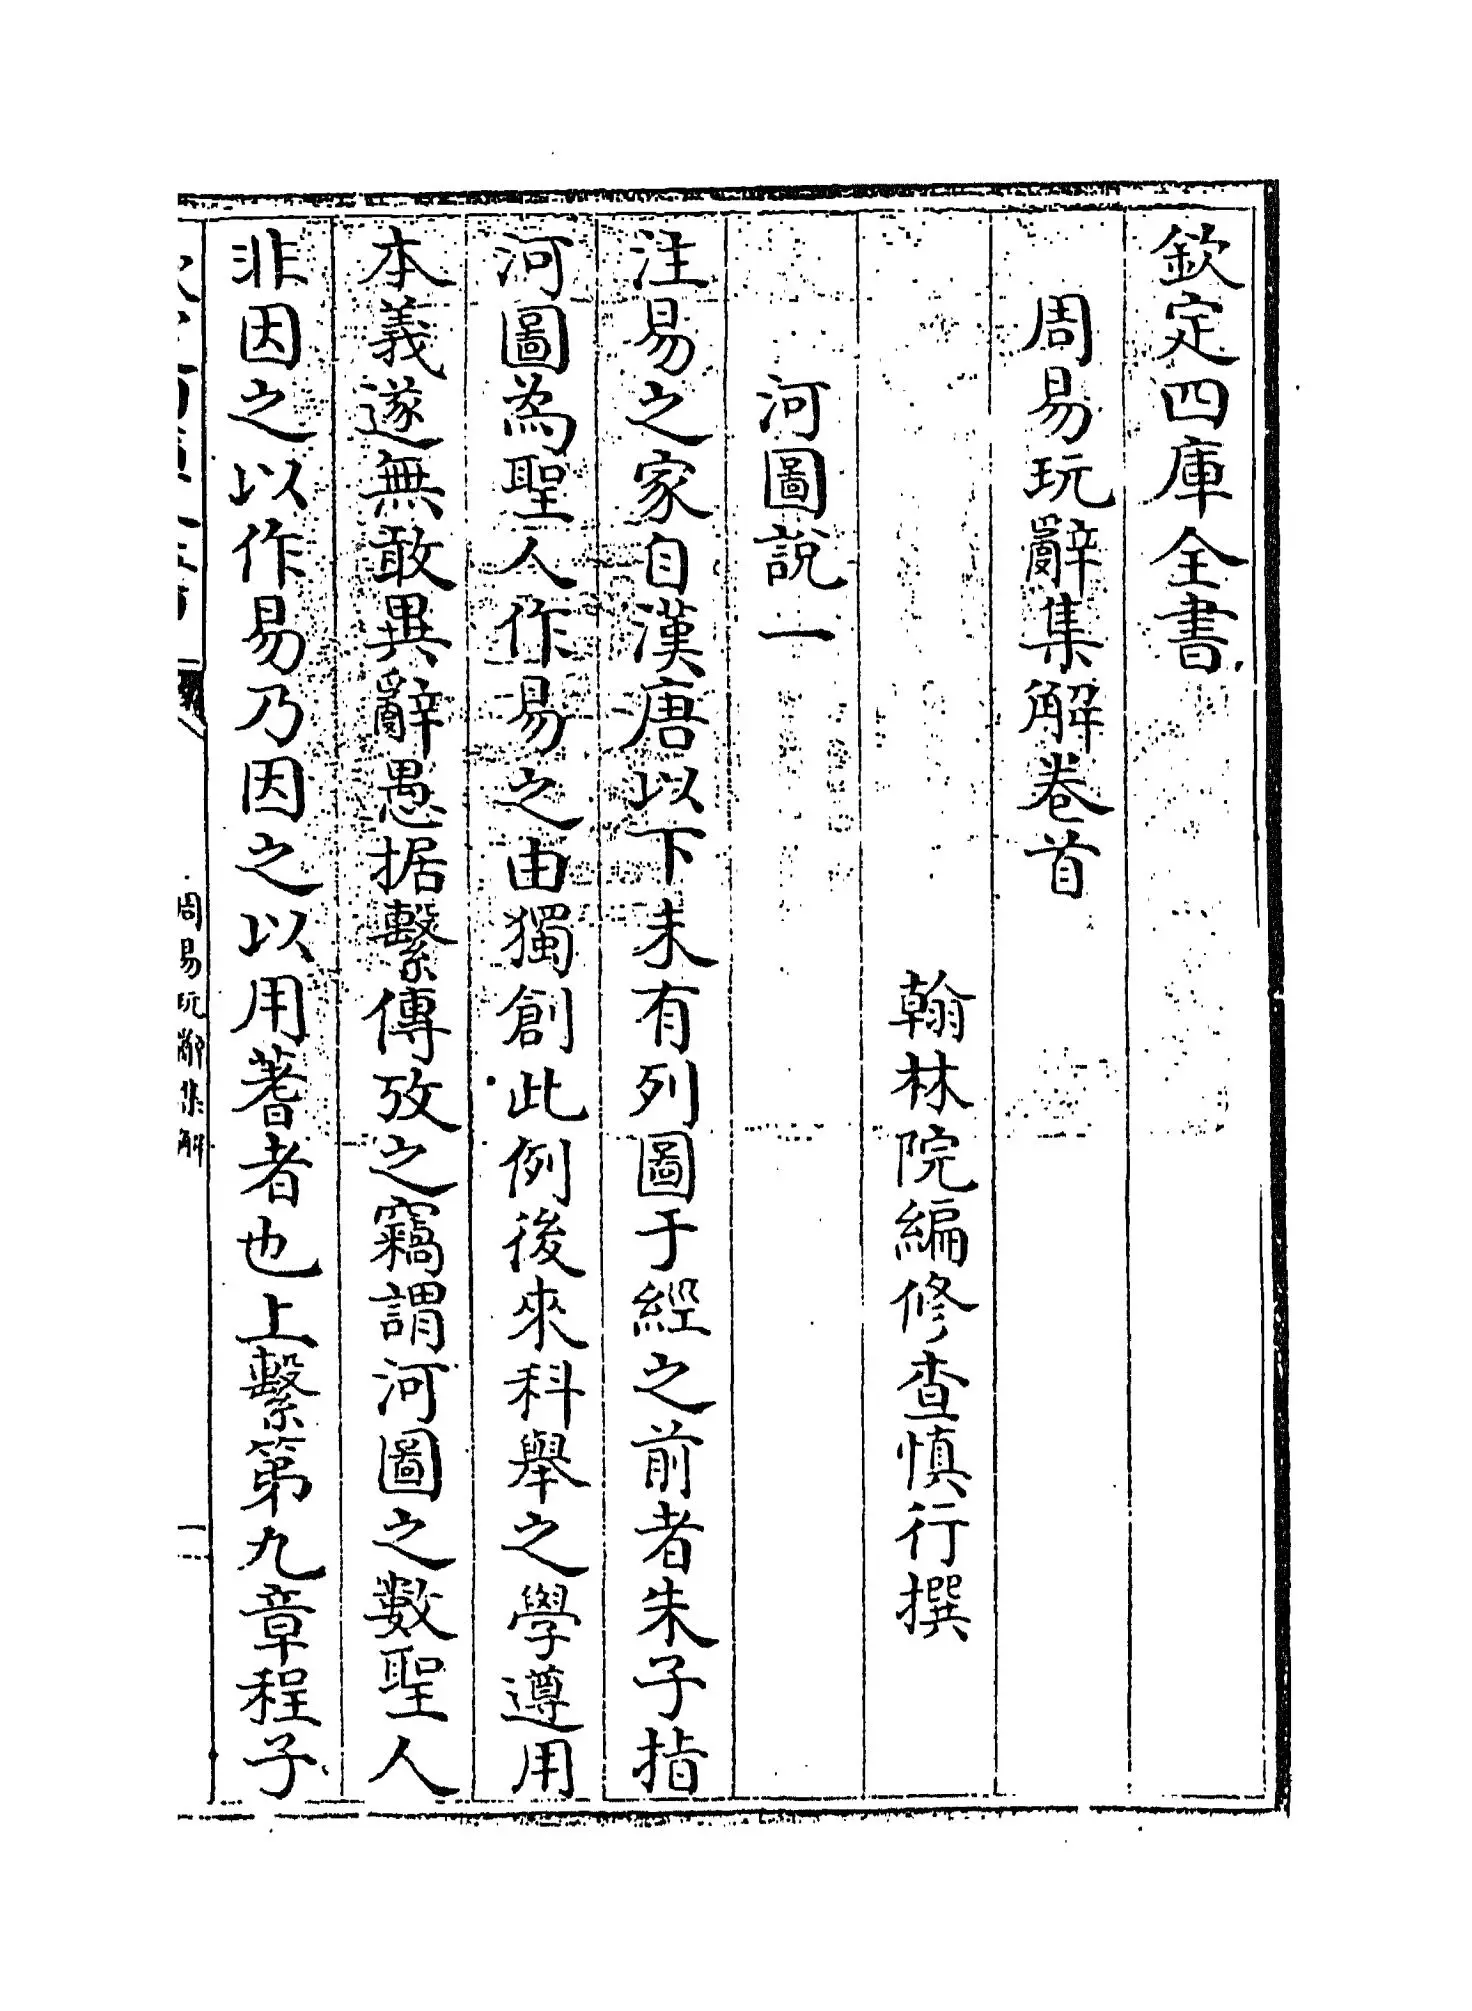 欽定四庫全書
周易玩辭集解卷首
翰林院編修查慎行撰
河圖說一
注易之家自漢唐以下未有列圖于經之前者朱子指
河圖為聖人作易之由獨創此例後來科舉之學遵用
本義遂無敢異辭愚据繫傳攷之竊謂河圖之數聖人
非因之以作易乃因之以用蓍者也上繫第九章程子
周易玩辭集解
一